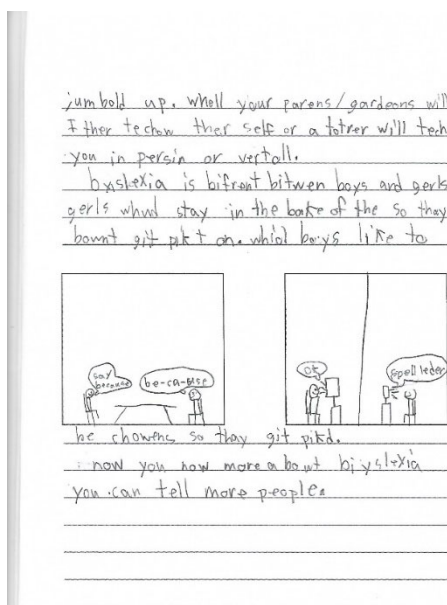 jumbold up. whell your parens/gardeans will
I ther techow ther self or a totrer will tech
you in persin or vertall.
byslexia is bifrent bitwen boys and gerls
gerls whud stay in the bake of the so thay
bownt git pikt on. whiol boys like to
say
becaues
be-ca-use
ok
spell leder
be chowens so thay git pikd.
now you now more a bowt biyslexia
you can tell more people.